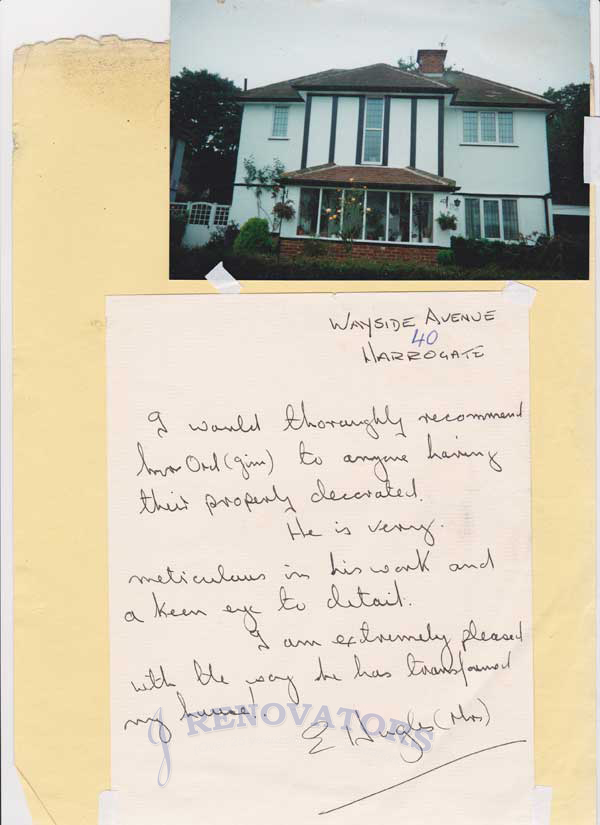 WAYSIDE AVENUE
40
HARROGATE
I would thoroughly recommend
Mr Ord (Jim) to anyone having
their property decorated.
He is very
meticulous in his work and
a keen eye to detail.
I am extremely pleased
with the way he has transformed
my house!
J RENOVATORS
E Hughes (Mrs)